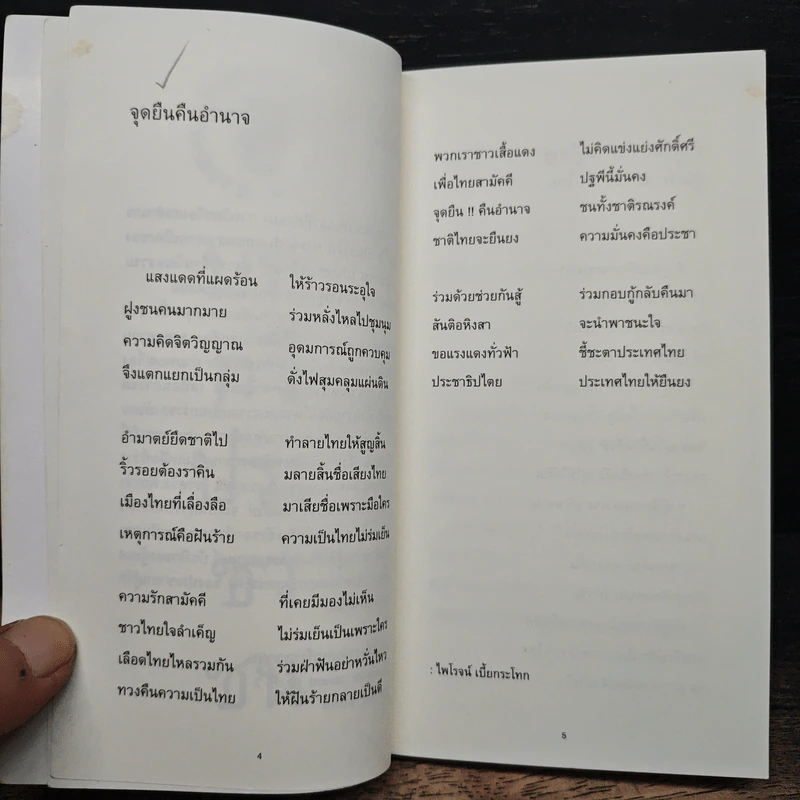 จุดยืนคืนอำนาจ
แสงแดดที่แผดร้อน ให้ร้าวรอนระอุใจ
ฝูงชนคนมากมาย ร่วมหลั่งไหลไปชุมนุม
ความคิดจิตวิญญาณ อุดมการณ์ถูกควบคุม
จึงแตกแยกเป็นกลุ่ม ดั่งไฟสุมคลุมแผ่นดิน
อำมาตย์ยึดชาติไป ทำลายไทยให้สูญสิ้น
ริ้วรอยต้องราคิน มลายสิ้นชื่อเสียงไทย
เมืองไทยที่เลื่องลือ มาเสียชื่อเพราะมือใคร
เหตุการณ์คือฝันร้าย ความเป็นไทยไม่ร่มเย็น
ความรักสามัคคี ที่เคยมีมองไม่เห็น
ชาวไทยใจลำเค็ญ ไม่ร่มเย็นเป็นเพราะใคร
เลือดไทยไหลรวมกัน ร่วมฝ่าฟันอย่าหวั่นไหว
ทวงคืนความเป็นไทย ให้ฝันร้ายกลายเป็นดี
4
พวกเราชาวเสื้อแดง ไม่คิดแข่งแย่งศักดิ์ศรี
เพื่อไทยสามัคคี ปฐพีนี้มั่นคง
จุดยืน !! คืนอำนาจ ชนทั้งชาติรณรงค์
ชาติไทยจะยืนยง ความมั่นคงคือประชา
ร่วมด้วยช่วยกันสู้ ร่วมกอบกู้กลับคืนมา
สันติอหิงสา จะนำพาชนะใจ
ขอแรงแดงทั่วฟ้า ชี้ชะตาประเทศไทย
ประชาธิปไตย ประเทศไทยให้ยืนยง
: ไพโรจน์ เบี้ยกระโทก
5